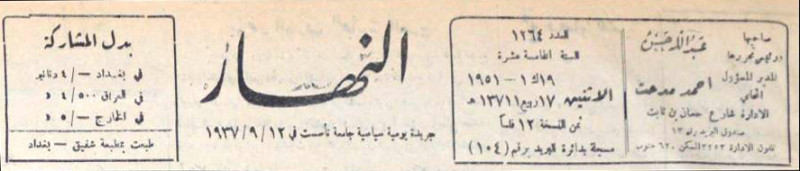 صاحبها
ورئيس تحريرها
عبدالله حسن
المدير المسؤول
المحامي
احمد مدحت
الادارة شارع حسان بن ثابت
صندوق البريد رقم ١٣
تلفون الادارة ٣٢٥٣ السكن ٦٢٠ جنوب
العدد ١٢٦٤
السنة الخامسة عشرة
الاثنين
١٩ ك١ - ١٩٥١
١٧ ربيع١ ١٣٧١ هـ
ثمن النسخة ١٢ فلساً
مسجلة بدائرة البريد برقم (١٠٤)
النهار
جريدة يومية سياسية جامعة تأسست في ١٩٣٧/٩/١٢
بدل المشاركة
في بغداد -/٤ دنانير
في العراق ٤/٥٠٠ د
في الخارج -/٥ د
طبعت بمطبعة شفيق - بغداد